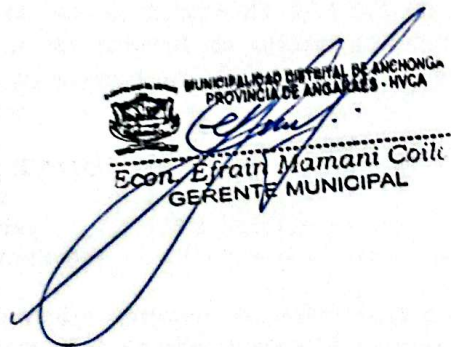 MUNICIPALIDAD DISTRITAL DE ANCHONGA
PROVINCIA DE ANGARAES - HVCA
Econ. Efrain Mamani
GERENTE MUNICIPAL